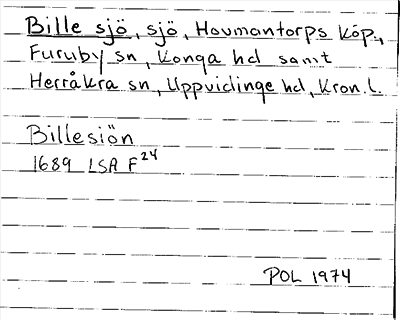 Bille sjö, sjö, Hovmantorps köp.,
Furuby sn, Konga hd samt
Herråkra sn, Uppvidinge hd, Kron. l.
Billesiön
1689 LSA F24
POL 1974